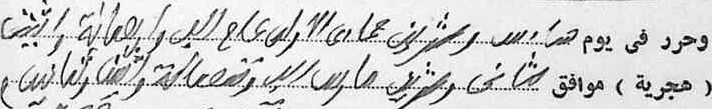 وحرر فى يوم سادس وعشرين جمادى الاولى عام الف واربعمائة واثنين
( هجرية ) موافق ثانى وعشرين مارس الف وتسعمائة واثنين وثمانين م